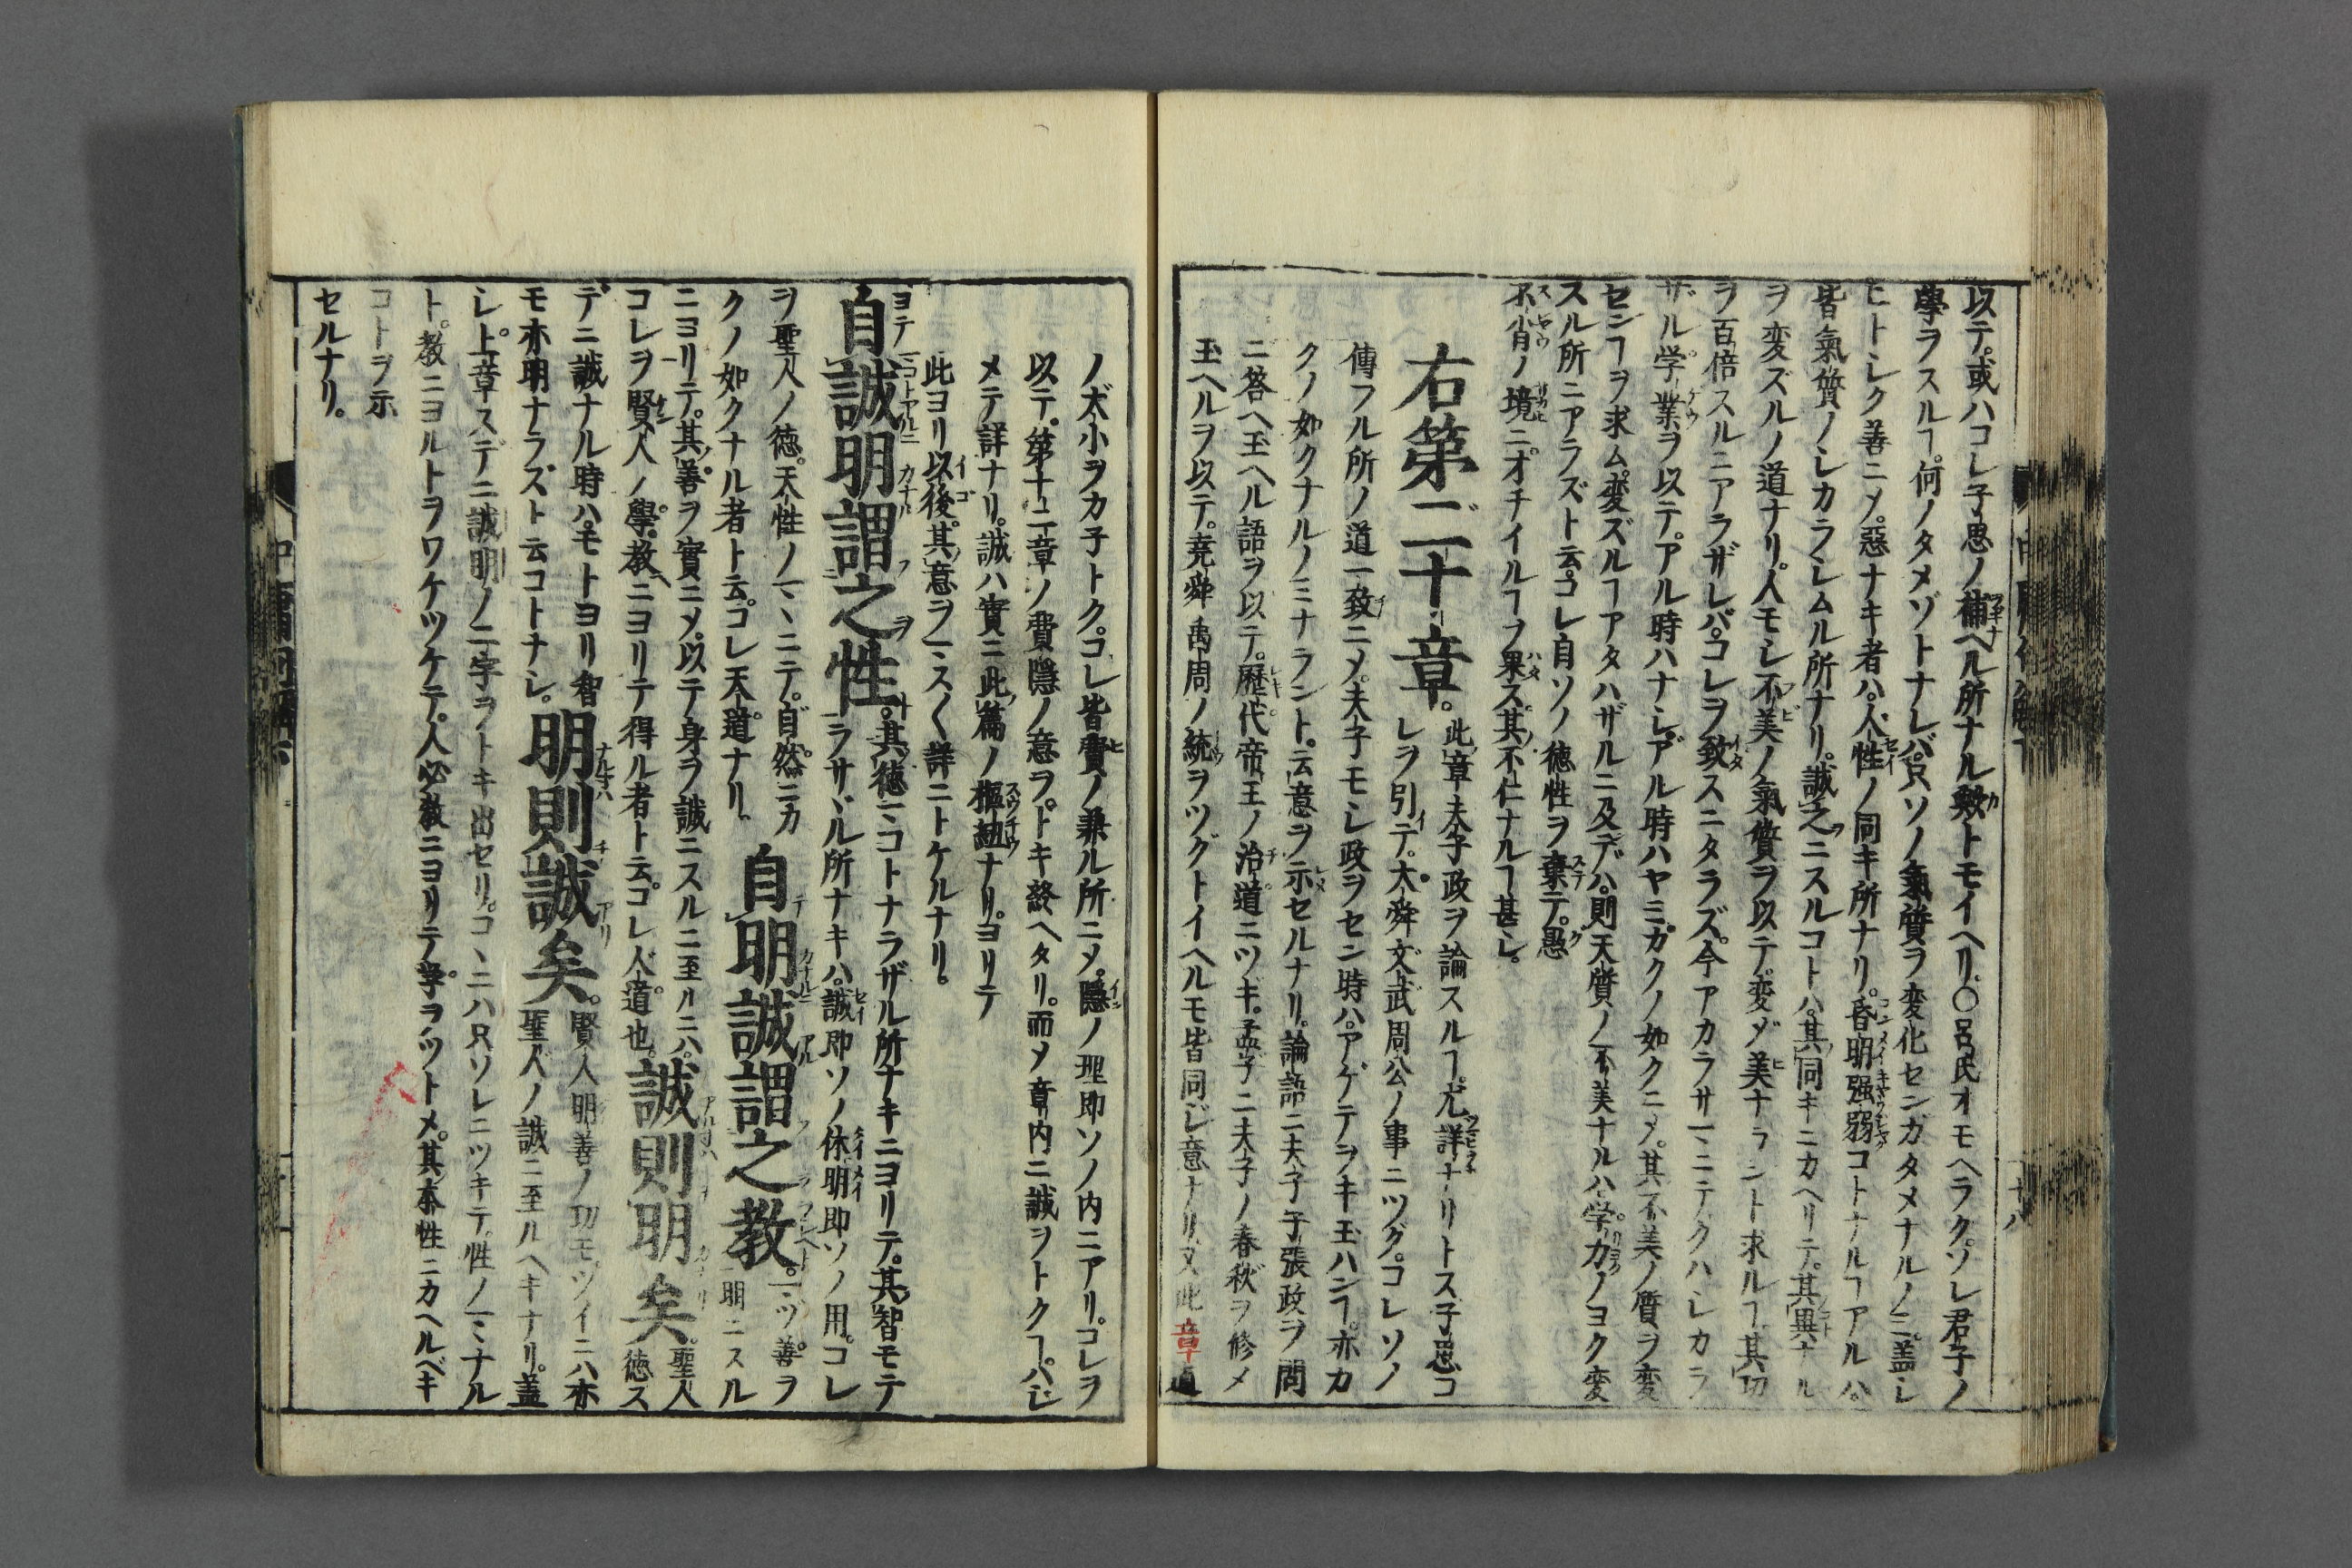 以テ。或ハコレ子思ノ補ヘル所ナル歟トモイヘリ。〇呂氏オモヘラク。ソレ君子ノ
學ヲスルヿ。何ノタメゾトナレバ。只ソノ氣質ヲ変化センガタメナルノミ。盖シ
ヒトシク善ニメ。惡ナキ者ハ。人性ノ同キ所ナリ。昏明强弱コトナルヿアルハ。
皆氣質ノシカラシムル所ナリ。誠之ニスルコトハ。其同キニカヘリテ。其異ナル
ヲ変ズルノ道ナリ。人モシ不美ノ氣質ヲ以テ。変ジ美ナラント求ルヿ。其功
ヲ百倍スルニアラザレバ。コレヲ致スニタラズ。今アカラサマニテクハシカラ
ザル学業ヲ以テ。アル時ハナシ。アル時ハヤミ。カクノ如クニメ。其不美ノ質ヲ変
センヿヲ求ム。変ズルヿアタハザルニ及デハ。則天質ノ不美ナルハ学力ノヨク変
スル所ニアラズト云。コレ自ソノ徳性ヲ棄テ。愚
不肖ノ境ニオチイルヿヲ果ス。其不仁ナルヿ甚シ。
右第二十章。此章夫子政ヲ論スルヿ。尤詳ナリトス子思コ
レヲ引テ。大舜文武周公ノ事ニツグ。コレソノ
傳フル所ノ道一致ニメ。夫子モシ政ヲセン時ハ。アゲテヲキ玉ハンヿ。亦カ
クノ如クナルノミナラント。云意ヲ示セルナリ。論語ニ夫子子張政ヲ問
ニ答ヘ玉ヘル語ヲ以テ。歴代帝王ノ治道ニツギ。孟子ニ夫子ノ春秋ヲ修メ
玉ヘルヲ以テ。堯舜禹周ノ統ヲツグトイヘルモ皆同ジ意ナリ又此章道
ノ大小ヲカ子トク。コレ皆費ノ兼ル所ニメ。隱ノ理即ソノ内ニアリ。コレヲ
以テ。第十二章ノ費隱ノ意ヲ。トキ終ヘタリ。而メ章内ニ誠ヲトクヿ。ハジ
メテ詳ナリ。誠ハ實ニ此篇ノ樞紐ナリ。ヨリテ
此ヨリ以後。其意ヲマスく詳ニトケルナリ。
自誠明謂之性。其徳マコトナラザル所ナキニヨリテ。其智モテ
ラサヾル所ナキハ。誠即ソノ体。明即ソノ用。コレ
ヲ聖人ノ徳。天性ノマヽニテ。自然ニカ
クノ如クナル者ト云。コレ天道ナリ。自明誠謂之教。マヅ善ヲ
明ニスル
ニヨリテ。其善ヲ實ニメ。以テ身ヲ誠ニスルニ至ルニハ。誠則明矣。聖人
徳ス
コレヲ賢人ノ學。教ニヨリテ得ル者ト云。コレ人道也。
デニ誠ナル時ハ。モトヨリ智明則誠矣。賢人明善ノ功モ。ツイニハ亦
モ亦明ナラズト云コトナシ。聖人ノ誠ニ至ルヘキナリ。盖
シ上章スデニ誠明ノ二字ヲトキ出セリ。コヽニハ只ソレニツキテ。性ノマヽナル
ト。教ニヨルトヲワケツケテ。人必教ニヨリテ学ヲツトメ。其本性ニカヘルベキ
コトヲ示
セルナリ。